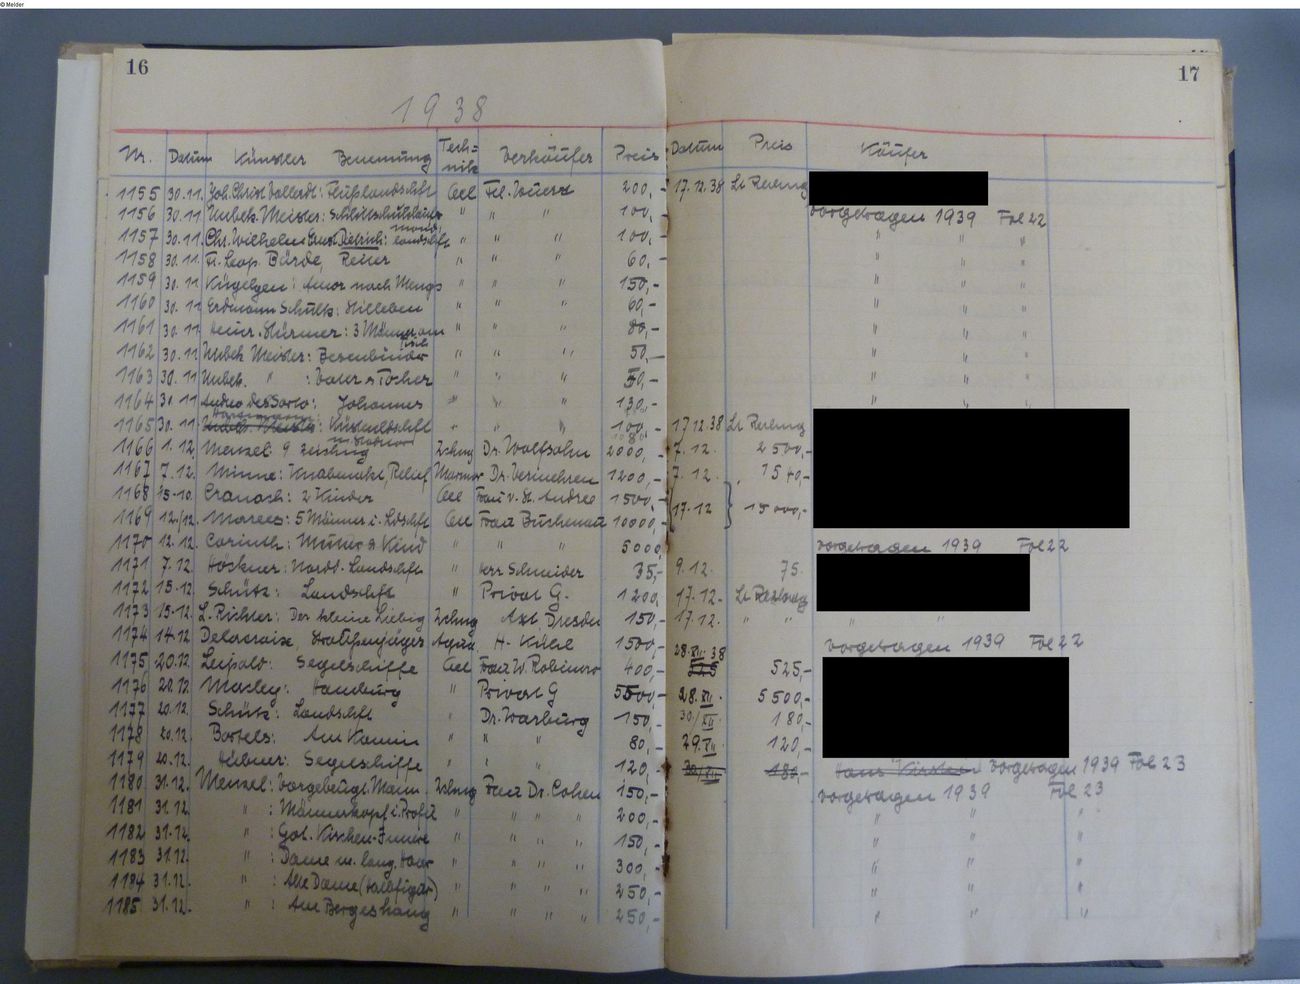 © Melder
16
1938
Nr. Datum Künstler Benennung Tech=nik Verkäufer Preis
1155 30.11. Joh. Christ. Vollerdt: Flußlandschft Oel Frl. 200,-
1156 30.11. Unbek. Meister: " " " 100,-
1157 30.11. Chr. Wilhelm Ernst Dietrich: Mond landschft " " " 100,-
1158 30.11. Fr. Leop. Bürde, Reiter " " " 60,-
1159 30.11 Kügelgen: Amor nach Mengs " " " 150,-
1160 30.11 Erdmann Schultz: Stilleben " " " 60,-
1161 30.11 Heinr. Stürmer: 3 Männer am Tisch " " " 80,-
1162 30.11. Unbek Meister: Besenbinder " " " 50,-
1163 30.11. Unbek. " : Vater & Tochter " " " 50,-
1164 30.11 Andrea del Sarto: Johannes " " " 130,-
1165 30.11. Küstenldschft " " " 100,-
1166 1.12. Menzel 9 Zeichng Zchng Dr. Wolfsohn 2000,-
1167 7.12. Minne: Knabenakt, Relief Marmor Dr. Vermehren 1200,-
1168 15.10. Cranach: 2 Kinder Oel Frau v. St. André 1500,-
1169 12./12. Marees: 5 Männer i. Ldschft Oel Frau Buchenau 10000,-
1170 12.12. Corinth: Mutter & Kind " " " 5000,
1171 7.12 Höckner: Nordd. Landschft " Herr Schneider 35,-
1172 15.12. Schütz: Landschft " Privat G. 1200,
1173 15.12. L. Richter: Der kleine Liebig Zchng Axt Dresden 150,-
1174 14.12 Delacroix, Aqua, H. 1500,-
1175 20.12. Leipold: Segelschiffe Oel Frau W. Robinow 400,-
1176 20.12 Hamburg " Privat G 5500,-
1177 20.12. Schütz: Landschft " Dr. Warburg 150,-
1178 20.12. Bartels: Am Kamin " " " 80,-
1179 20.12. Hübner: Segelschiffe " " " 120,-
1180 31.12. Menzel: Vorgebeugt. Mann Zchng Frau Dr. Cohen 150,-
1181 31.12 " : Männerkopf i. Profil " " " " 200,-
1182 31.12. " : Got. Kirchen-Innere " " " " 150,-
1183 31.12. " : Dame m. lang. Haar " " " " 300,-
1184 31.12. " : Alte Dame (Halbfigur) " " " " 250,-
1185 31.12. " : Am Bergeshang " " " " 250,-
17
Datum Preis Käufer
17.12.38 Lt Rechng
vorgetragen 1939 Fol 22
" " "
" " "
" " "
" " "
" " "
" " "
" " "
" " "
17.12.38 Lt Rechng
7.12. 2500,-
7.12. 1540,-
17.12 15000,-
vorgetragen 1939 Fol 22
9.12. 75.
17.12. Lt Rechng
17.12. " " " "
vorgetragen 1939 Fol 22
28.XII.38 525,-
28.XII. 5500,-
30/XII 180,-
29.XII 120,-
30/XII 180- vorgetragen 1939 Fol 23
vorgetragen 1939 Fol 23
" " "
" " "
" " "
" " "
" " "